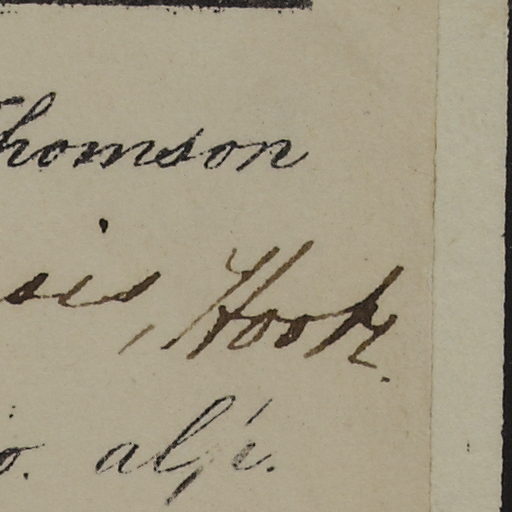 Thomson
sis, Hook.
o. alp.